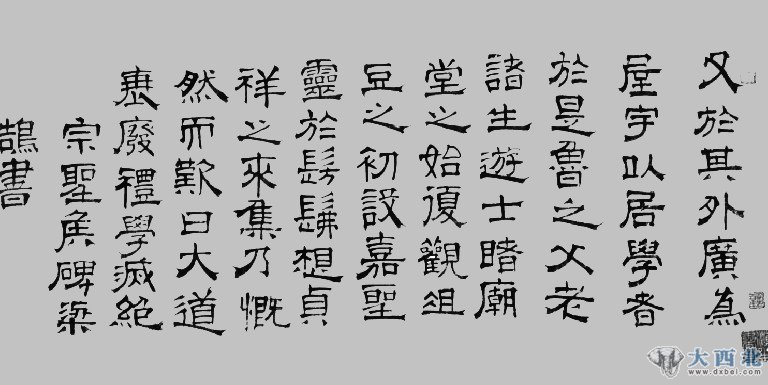 又於其外廣為
屋宇以居學者
於是魯之父老
諸生遊士睹廟
堂之始復觀俎
豆之初設嘉聖
靈於髣髴想貞
祥之來集乃慨
然而歎曰大道
衰廢禮學滅絕
宗聖侯碑梁
鵠書
大西北
www.dxbei.com